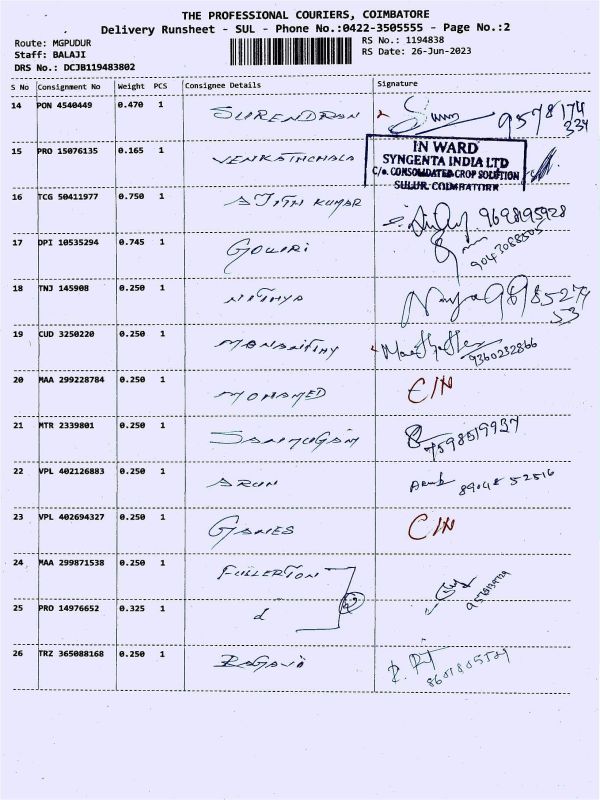 THE PROFESSIONAL COURIERS, COIMBATORE
Delivery Runsheet - SUL - Phone No.:0422-3505555 - Page No.:2
Route: MGPUDUR RS No.: 1194838
Staff: BALAJI RS Date: 26-Jun-2023
DRS No.: DCJB119483802
S No Consignment No Weight PCS Consignee Details Signature
14 PON 4540449 0.470 1 SURENDRAN 9578174
334
15 PRO 15076135 0.165 1 VENKATHCHALA IN WARD
SYNGENTA INDIA LTD
C/o. CONSOLIDATED CROP SOLUTION
SULUR, COIMBATORE
16 TCG 50411977 0.750 1 AJITH KUMAR 9698195928
17 DPI 10535294 0.745 1 GOWRI
18 TNJ 145908 0.250 1 NITHYA
19 CUD 3250220 0.250 1 9360232866
20 MAA 299228784 0.250 1 MOHAMED C/N
21 MTR 2339801 0.250 1 SANMUGAM 7598519937
22 VPL 402126883 0.250 1 ARUN 89048 52516
23 VPL 402694327 0.250 1 GANES C/N
24 MAA 299871538 0.250 1 FULLERTON
25 PRO 14976652 0.325 1 d
26 TRZ 365088168 0.250 1